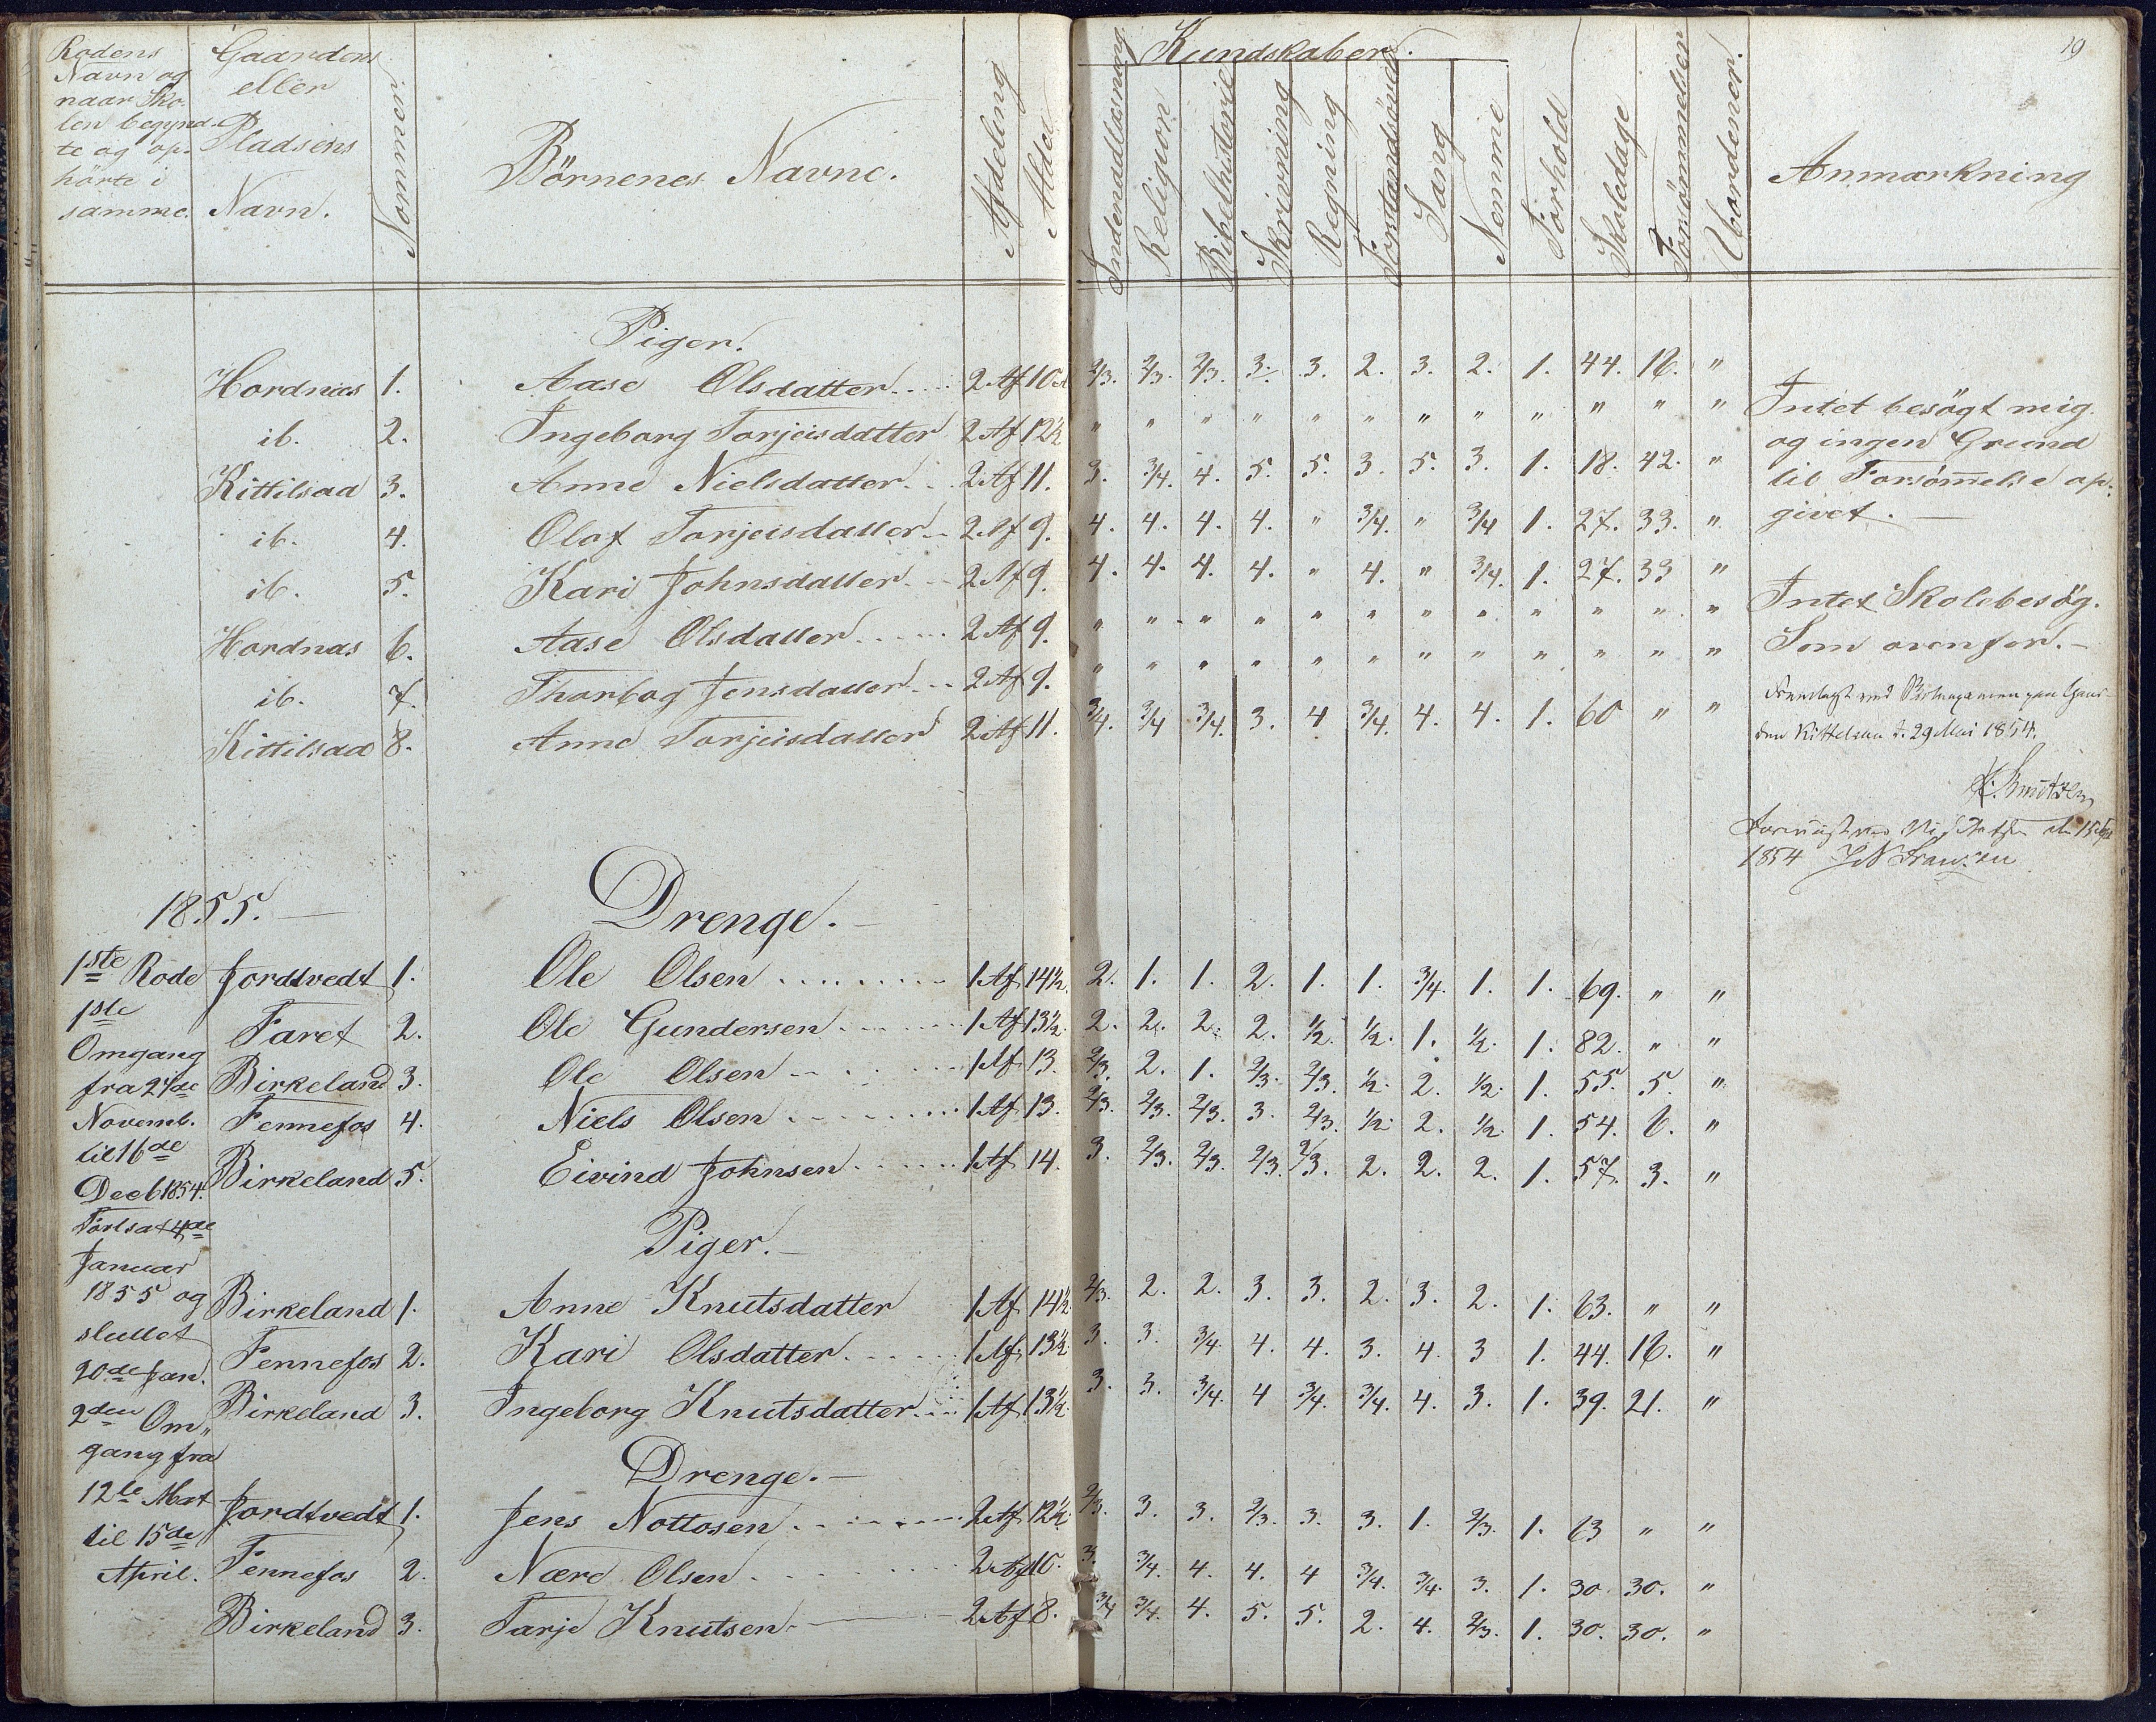 19
Rodens Navn og naar Sko- len begynd- te og op- hørte i samme.
Gaardens eller Pladsens Navn.
Nommer.
Börnenes Navne.
Afdeling
Alder
Kundskaber.
Indenadlæsning
Religion
Bibelhistorie
Skrivning
Regning
Forstandsöv
Sang
Nemme
Forhold
Skoledage
Forsömmelser
Uordener.
Anmærkning
Piger.
Hordnæs 1. Aase Olsdatter.... 2 Af 10 2/3. 2/3. 2/3. 3. 3. 2. 3. 2. 1. 44. 16. "
ib. 2. Ingeborg Torjeisdatter 2 Af 12½ " " " " " " " " " " " " Intet besögt mig og ingen Grund til Forsömelse op- givet. —
Kittilsaa 3. Anne Nielsdatter.. 2 Af 11. 3. 3/4. 4. 5. 5. 3. 5. 3. 1. 18. 42. "
ib. 4. Olaf Torjeisdatter.. 2 Af 9. 4. 4. 4. 4. " 3/4. " 3/4 1. 27. 33. "
ib. 5. Kari Johnsdatter.. 2 Af 9. 4. 4. 4. 4. " 4. " 3/4. 1. 27. 33 "
Hordnæs 6. Aase Olsdatter..... 2 Af 9. " " " " " " " " " " " " Intet Skolebesög.
ib. 7. Thorbog Jensdatter... 2 Af 9. " " " " " " " " " " " " Som ovenfor. —
Kittilsaa 8. Anne Torjeisdatter 2 Af 11. 3/4. 3/4 3/4. 3. 4 3/4. 4. 4. 1. 60 " "
Fremlagt ved Skoleexamen paa Gaar-
den Kittelsaa d. 29 Mai 1854.
Knutzen
1854
1855. — Drenge. —
1ste Rode Jordtvedt 1. Ole Olsen ........ 1 Af 14½. 2. 1. 1. 2. 1. 1. 3/4. 1. 1. 69. " "
1ste Faret 2. Ole Gundersen ..... 1 Af 13½. 2. 2. 2. 2. ½. ½. 1. ½. 1. 82. " "
Omgang
fra 24de Birkeland 3. Ole Olsen ...... 1 Af 13. 2/3. 2. 1. 2/3. 2/3. ½. 2. ½. 1. 55. 5. "
Novemb. Fennefos 4. Niels Olsen ....... 1 Af 13. 2/3. 2/3. 2/3. 3. 2/3. ½. 2. ½. 1. 54. 6. "
til 16de
Decb 1854. Birkeland 5. Eivind Johnsen ..... 1 Af 14. 3. 2/3. 2/3. 2/3. 2/3. 2. 2. 2. 1. 57. 3. "
Fortsat 4de Piger. —
Januar
1855 og Birkeland 1. Anne Knutsdatter 1 Af 14½. 2/3. 2. 2. 3. 3. 2. 3. 2. 1. 63. " "
sluttet
20de Jan. Fennefos 2. Kari Olsdatter..... 1 Af 13½. 3. 3. 3/4. 4. 4. 3. 4. 3 1. 44. 16. "
2den Om,, Birkeland 3. Ingeborg Knutsdatter... 1 Af 13½. 3. 3. 3/4. 4 3/4. 3/4. 4. 3. 1. 39. 21. "
gang fra Drenge. —
12te Mart Jordtvedt 1. Jens Nottosen ...... 2 Af 12½. 2/3. 3. 3. 2/3. 3. 3. 1. 2/3. 1. 63 " "
til 15de
April. Fennefos 2. Nære Olsen ...... 2 Af 10. 3. 3/4. 4. 4. 4 3/4. 3/4. 3. 1. 30. 30. "
Birkeland 3. Tarje Knutsen. — 2 Af 8. 3/4 3/4. 4. 5. 5. 2. 4. 2/3. 1. 30. 30. "